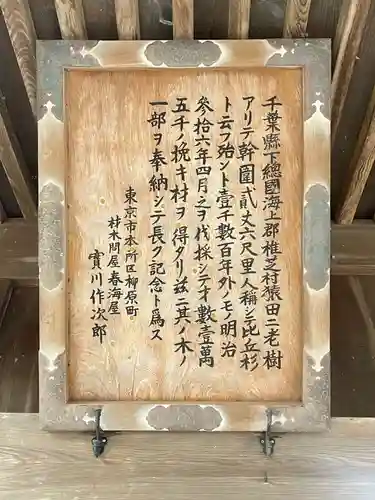 千葉縣下總國海上郡椎芝村猿田ニ老樹
アリテ幹圍貳丈六尺里人稱シテ比丘杉
ト云フ殆ント壹千數百年外ノモノ明治
參拾六年四月之ヲ伐採シテオ數壹萬
五千ノ挽キ材ヲ得タリ茲ニ其ノ木ノ
一部ヲ奉納シテ長ク記念ト爲ス
東京市本所區柳原町
材木問屋春海屋
寳川作次郎